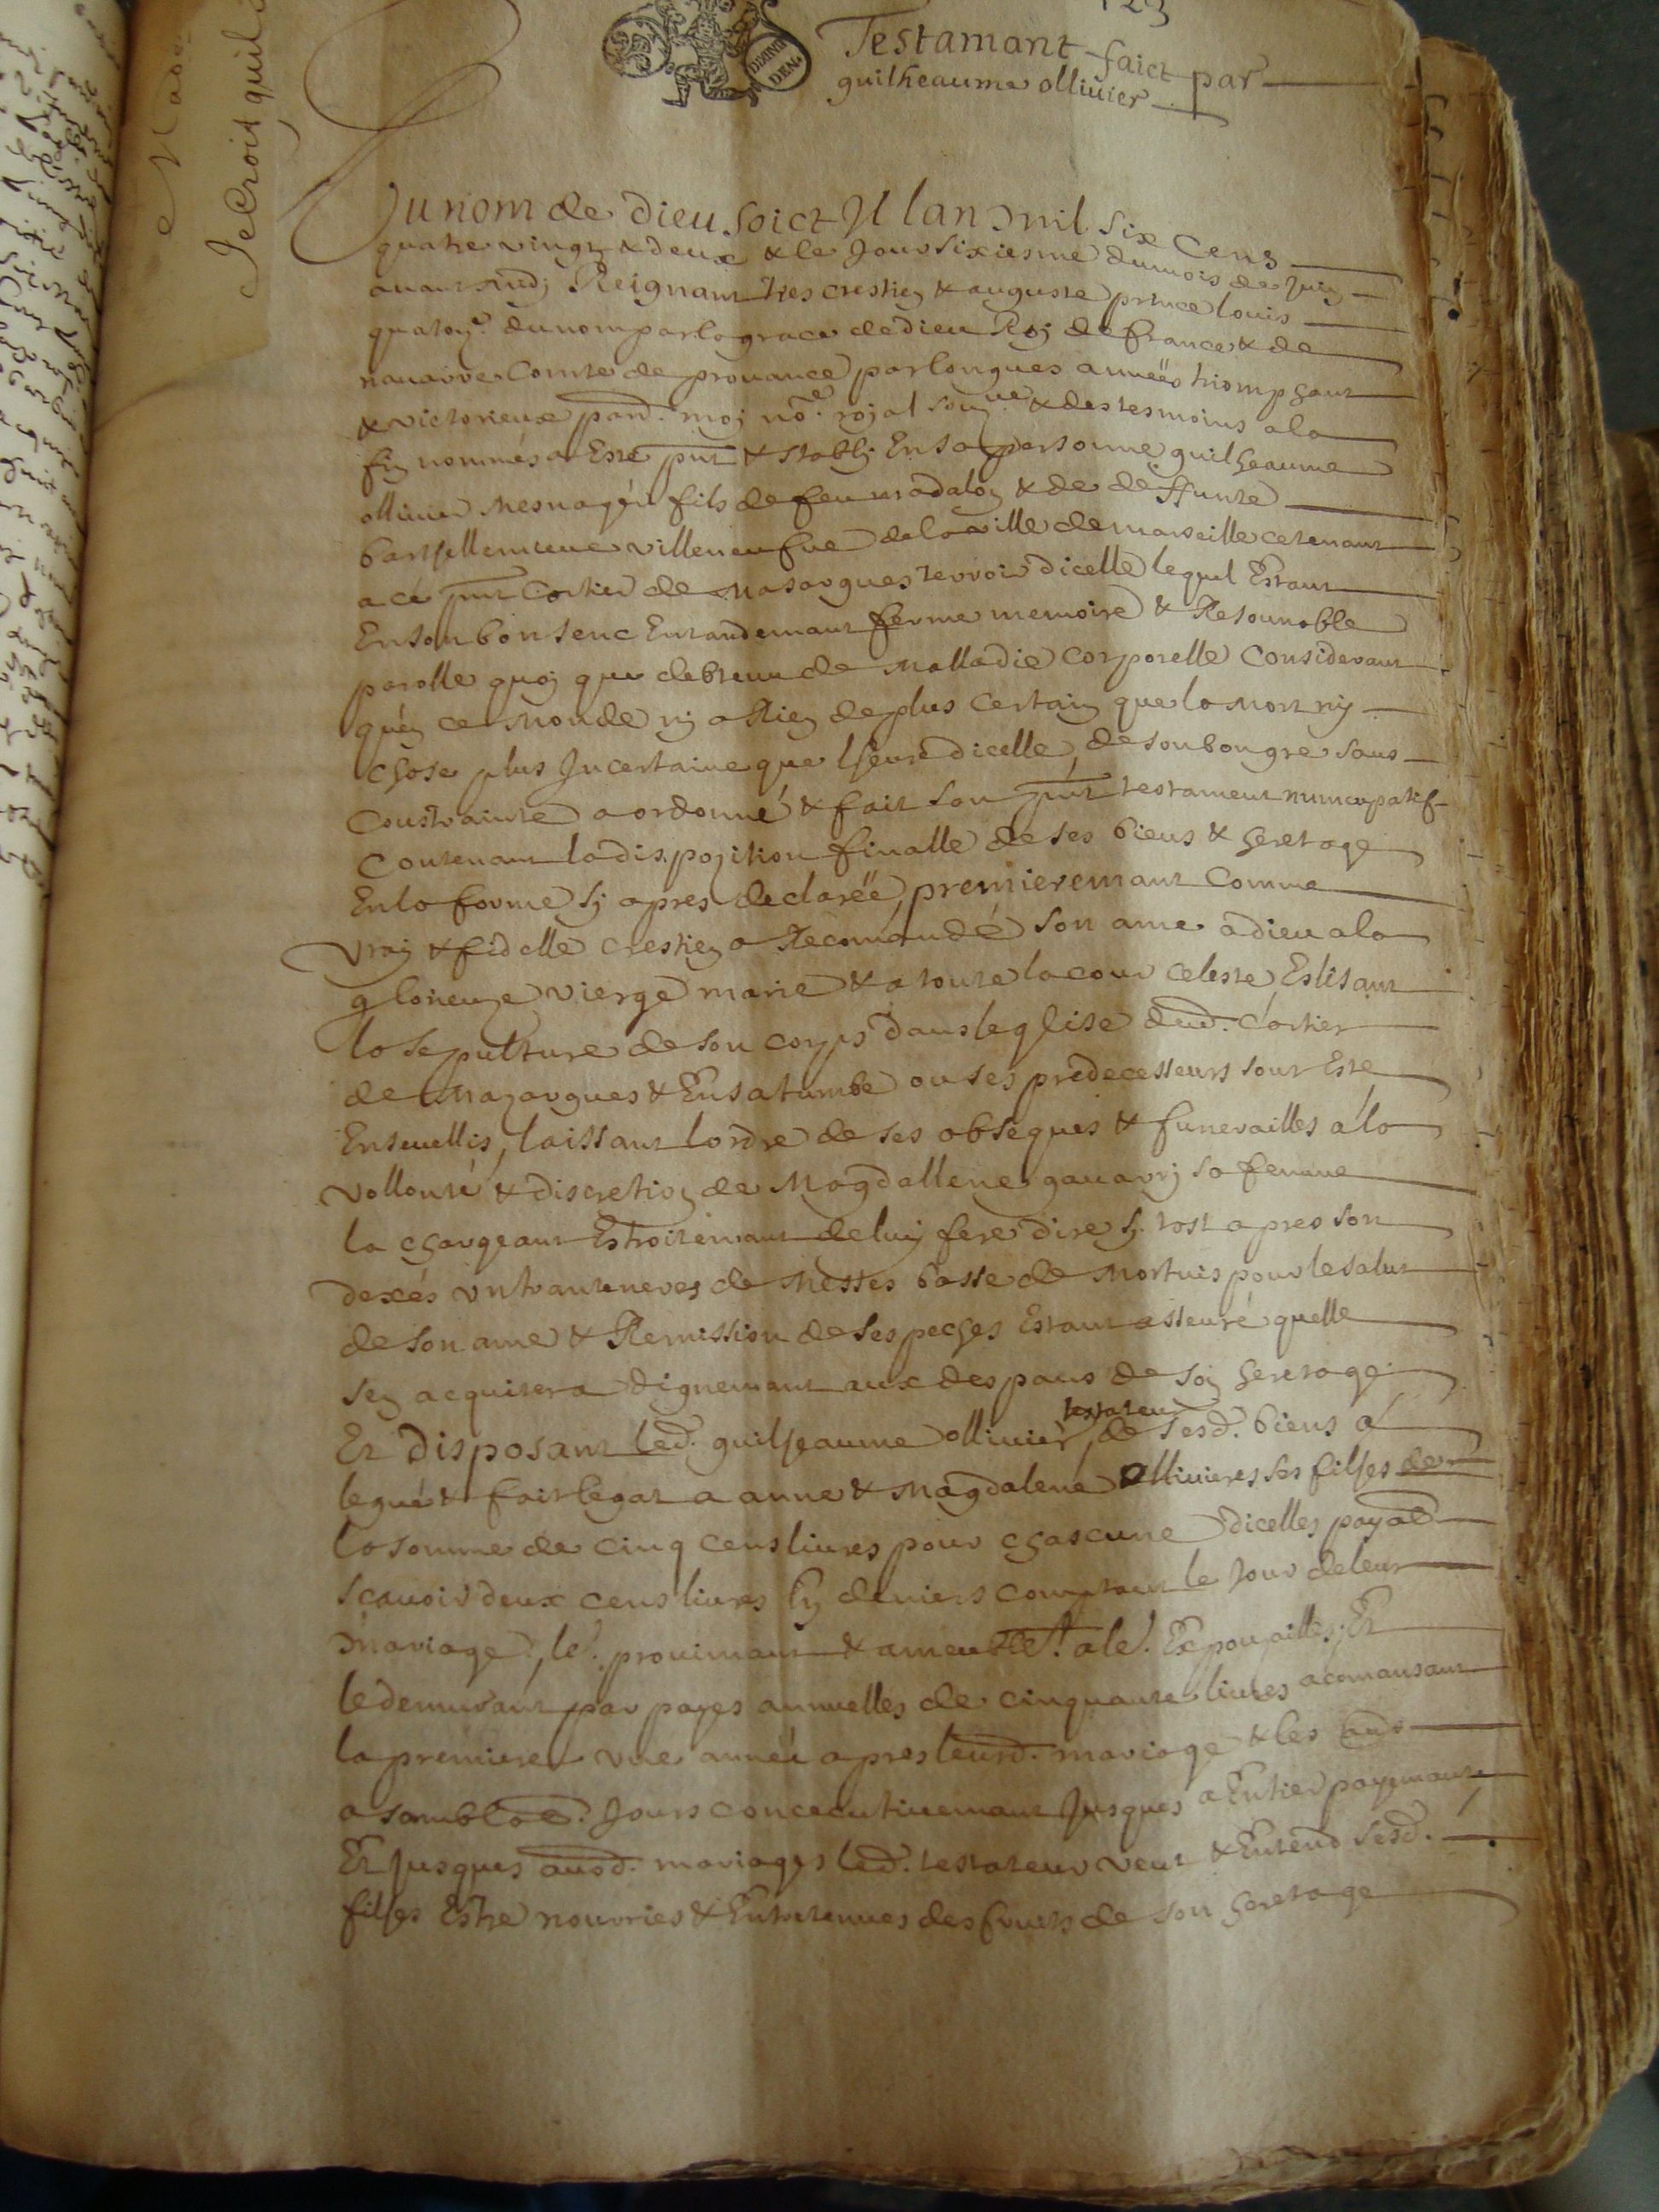 123
Testamant faict par
guilheaume ollivier
Au nom de dieu soict Il lan mil six cens
quatre vingtz & deux & le Jour sixiesme du mois de Juin
avant midj Reignant tres crestien & auguste prince louis
quatorze du nom par la grace de dieu Roj de france & de
navarre Comte de provance par longues années triomphant
& victorieux pard. moj nore. rojal soubz.né & des tesmoins a la
fin nommés a Esté pnt & Establj En sa personne guilheaume
ollivier mesnagér fils de feu madalon & de deffunte
barthellemieue villeneufve de la ville de marseille ce tenant
a cé pnt Cartier de masargues terroir dicelle lequel Estant
En son bon senc Entandemant ferme memoire & Resounable
parolle quoj que debtenu de malladie corporelle Considerant
quén ce monde nj a Rien de plus certain que la mort nj
chose plus Jncertaine que lheure dicelle, de son bon gre sans
Constrainte a ordonné & fait son pnt testament nuncupatif
Contenant la dispozition finalle de ses biens & heretage
En la forme sj apres declareë, premieremant Comme
vraj & fidelle crestien a Recomandé son ame a dieu a la
glorieuze vierge marie & a toute la cour celeste, Eslisant
la sepulture de son corps dans leglise dud. cartier
de mazargues & En sa tumbe ou ses predecesseurs sont Esté
Ensevellis, laissant lordre de ses obseques & funerailles a la
vollonté & discretion de Magdallene gavarrj sa femme
la chargeant Estroitemant de luj fere dire sj tost apres son
dexés un tranteneres de messes basse de mortuis pour le salut
de son ame & Remission de ses peches Estant asseuré quelle
sen acquitera dignemant aux despans de son heretage
testateur
Et disposant led. guilheaume ollivier, de sesd. biens a
legué & fait legat a anne & magdalene ollivieres ses filhes de
la somme de cinq cens livres pour chascune dicelles payab
scavoir deux cens livres En deniers comptant le jour de leur
mariage, le. provimant & ameublt. ale. Expouzailles. Et
le demurant par payes annuelles de cinquante livres acomansant
la premiere une année apres leurd. mariage & les aus
a samblab. Jours concecutivemant Jusques a Entier payemant
Et Jusques ausd. mariages led. testateur veut & Entend sesd.
filhes Estre nourries & Entretenues des fruits de son heretage
Je Crois quil